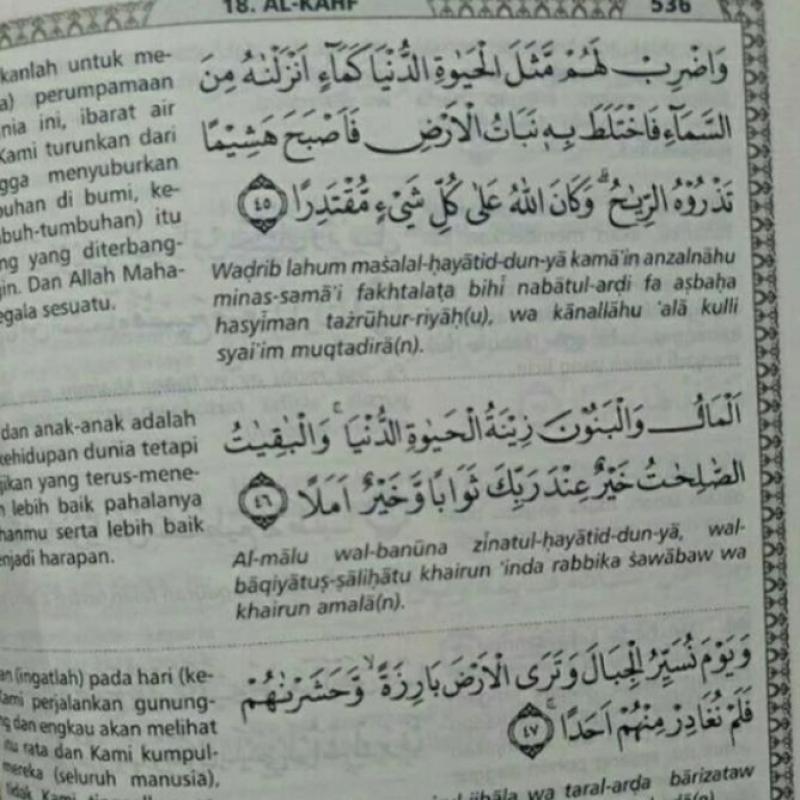 18. AL-KAHF
536
kanlah untuk me-
a) perumpamaan
nia ini, ibarat air
Kami turunkan dari
gga menyuburkan
buhan di bumi, ke-
buh-tumbuhan) itu
ng yang diterbang-
gin. Dan Allah Maha-
egala sesuatu.
وَاضْرِبْ لَهُمْ مَّثَلَ الْحَيٰوةِ الدُّنْيَا كَمَاۤءٍ اَنْزَلْنٰهُ مِنَ
السَّمَاۤءِ فَاخْتَلَطَ بِهٖ نَبَاتُ الْاَرْضِ فَاَصْبَحَ هَشِيْمًا
تَذْرُوْهُ الرِّيٰحُ ۗوَكَانَ اللّٰهُ عَلٰى كُلِّ شَيْءٍ مُّقْتَدِرًا ٤٥
Waḍrib lahum maṡalal-ḥayātid-dun-yā kamā'in anzalnāhu
minas-samā'i fakhtalaṭa bihī nabātul-arḍi fa aṣbaḥa
hasyīman tażrūhur-riyāḥ(u), wa kānallāhu 'alā kulli
syai'im muqtadirā(n).
dan anak-anak adalah
kehidupan dunia tetapi
jikan yang terus-mene-
h lebih baik pahalanya
hanmu serta lebih baik
enjadi harapan.
اَلْمَالُ وَالْبَنُوْنَ زِيْنَةُ الْحَيٰوةِ الدُّنْيَاۚ وَالْبٰقِيٰتُ
الصّٰلِحٰتُ خَيْرٌ عِنْدَ رَبِّكَ ثَوَابًا وَّخَيْرٌ اَمَلًا ٤٦
Al-mālu wal-banūna zīnatul-ḥayātid-dun-yā, wal-
bāqiyātuṣ-ṣāliḥātu khairun 'inda rabbika ṡawābaw wa
khairun amalā(n).
an (ingatlah) pada hari (ke-
Kami perjalankan gunung-
ng dan engkau akan melihat
mu rata dan Kami kumpul-
mereka (seluruh manusia),
tidak Kami
وَيَوْمَ نُسَيِّرُ الْجِبَالَ وَتَرَى الْاَرْضَ بَارِزَةًۙ وَّحَشَرْنٰهُمْ
فَلَمْ نُغَادِرْ مِنْهُمْ اَحَدًاۚ ٤٧
jibāla wa taral-arḍa bārizataw